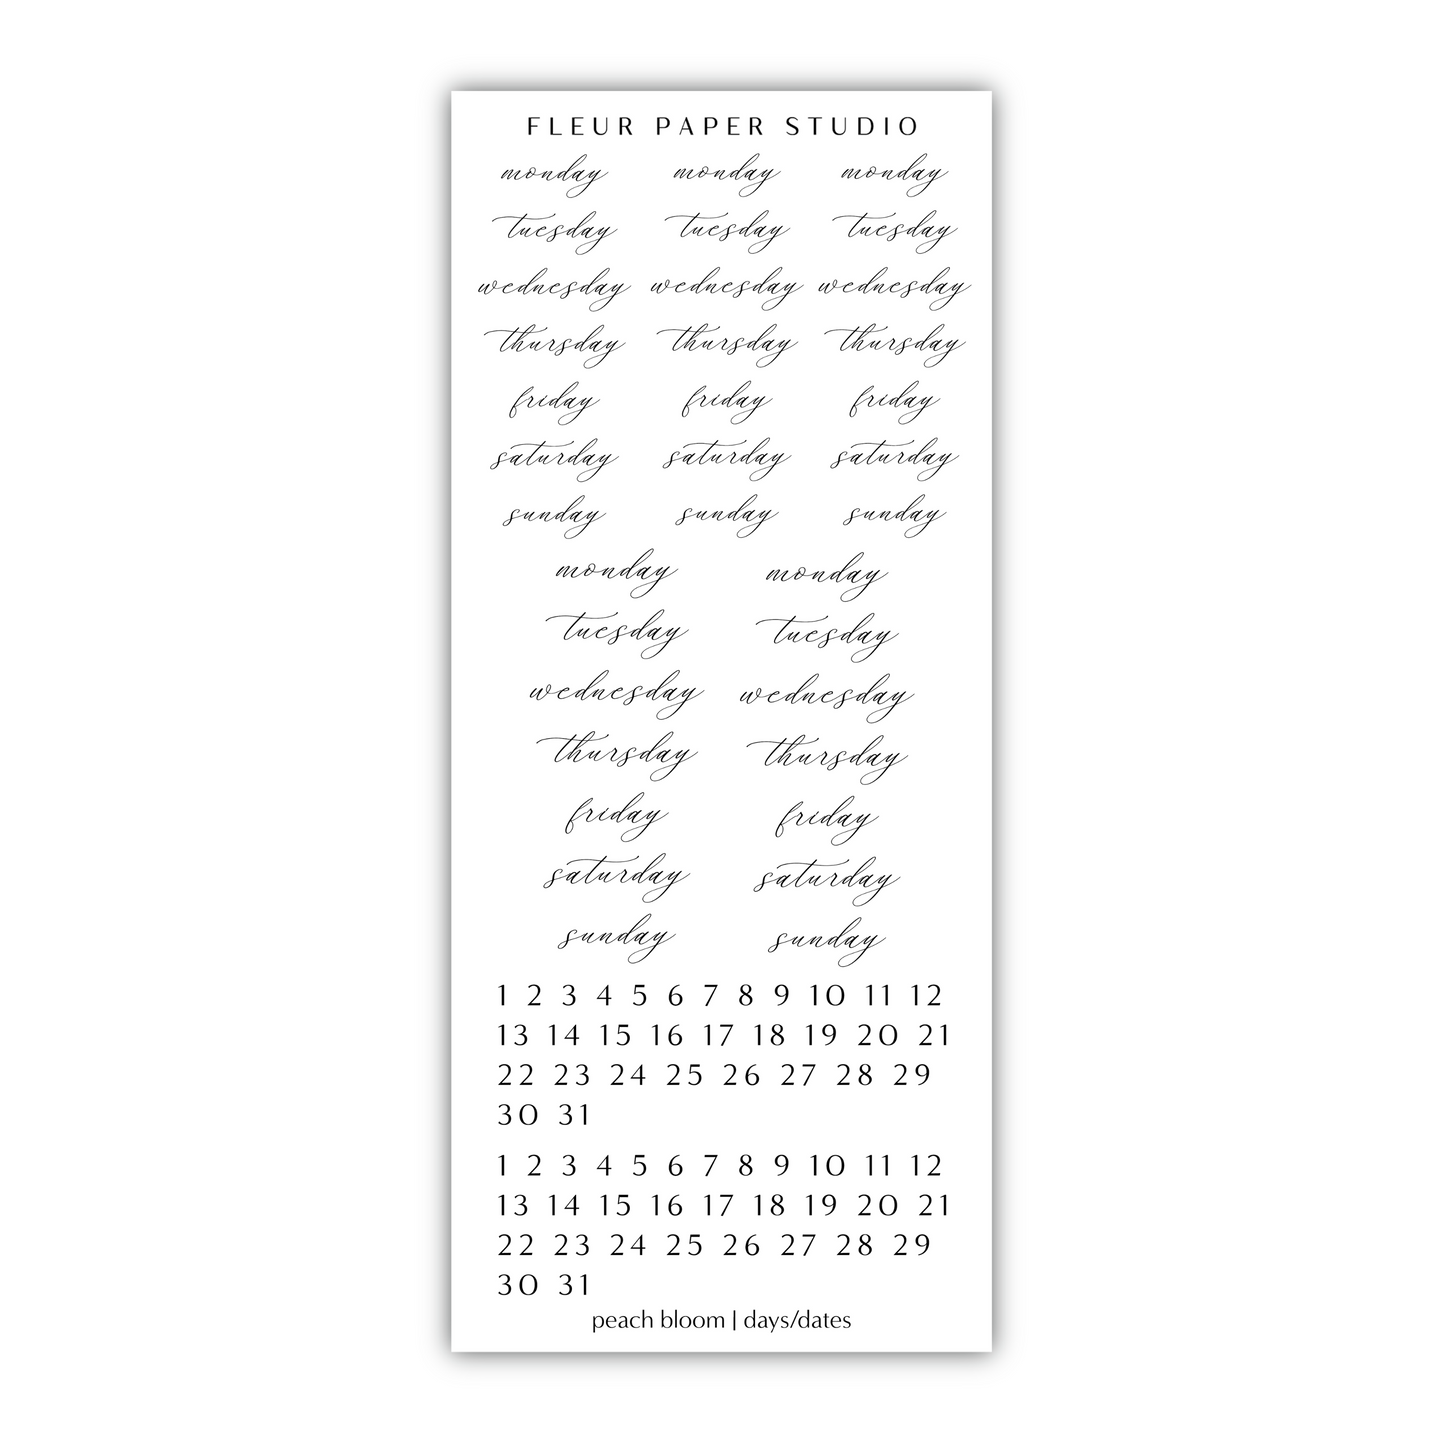 FLEUR PAPER STUDIO
monday monday monday
tuesday tuesday tuesday
wednesday wednesday wednesday
thursday thursday thursday
friday friday friday
saturday saturday saturday
sunday sunday sunday
monday monday
tuesday tuesday
wednesday wednesday
thursday thursday
friday friday
saturday saturday
sunday sunday
1 2 3 4 5 6 7 8 9 10 11 12
13 14 15 16 17 18 19 20 21
22 23 24 25 26 27 28 29
30 31
1 2 3 4 5 6 7 8 9 10 11 12
13 14 15 16 17 18 19 20 21
22 23 24 25 26 27 28 29
30 31
peach bloom | days/dates